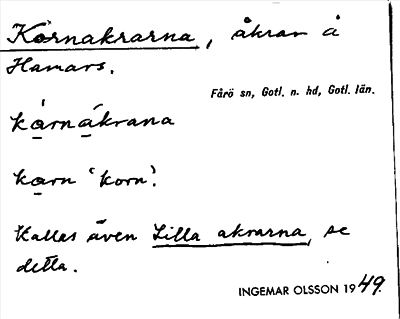 Kornakrarna, åkrar å
Hamars.
Fårö sn, Gotl. n. hd, Gotl. län.
kårnákrana
karn 'korn'.
Kallas även Lilla akrarna, se
detta.
INGEMAR OLSSON 1949.